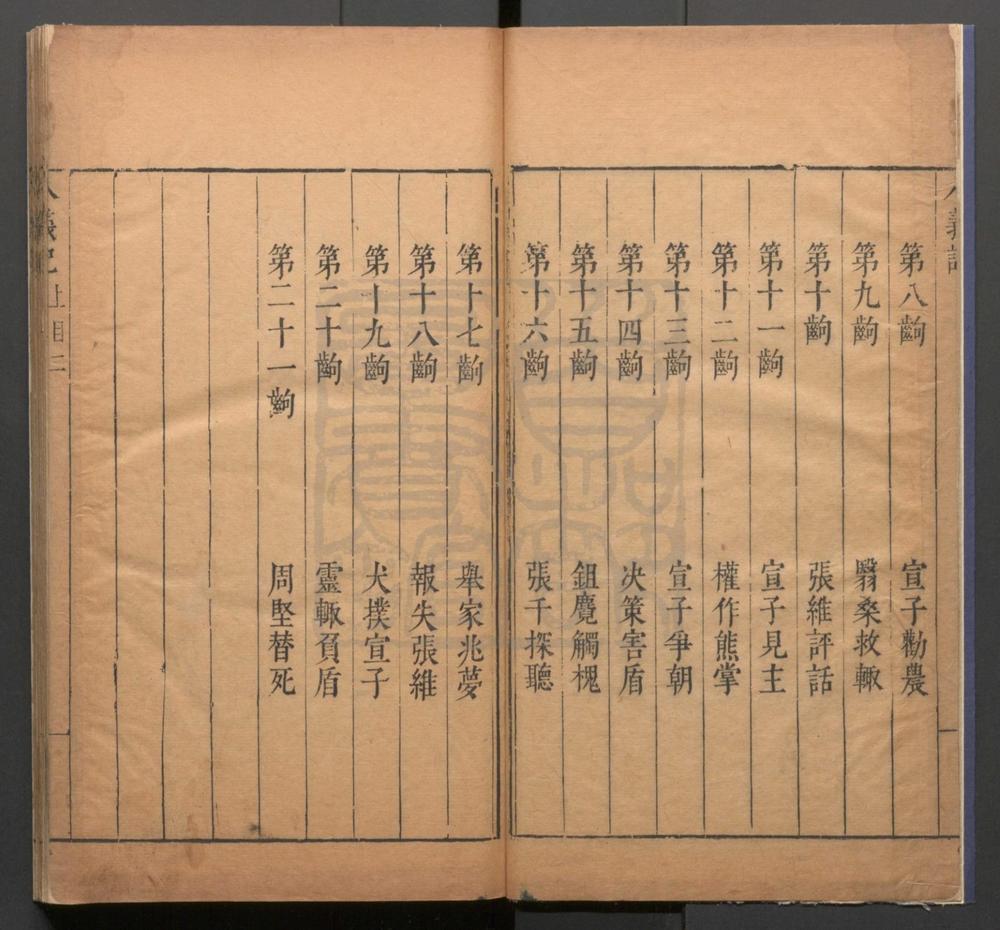 義記
第八齣 宣子勸農
第九齣 翳桑救輒
第十齣 張維評話
第十一齣 宣子見主
第十二齣 權作熊掌
第十三齣 宣子爭朝
第十四齣 决策害盾
第十五齣 鉏麑觸槐
第十六齣 張千探聽
第十七齣 舉家兆夢
第十八齣 報失張維
第十九齣 犬撲宣子
第二十齣 靈輒負盾
第二十一齣 周堅替死
八義記上目二